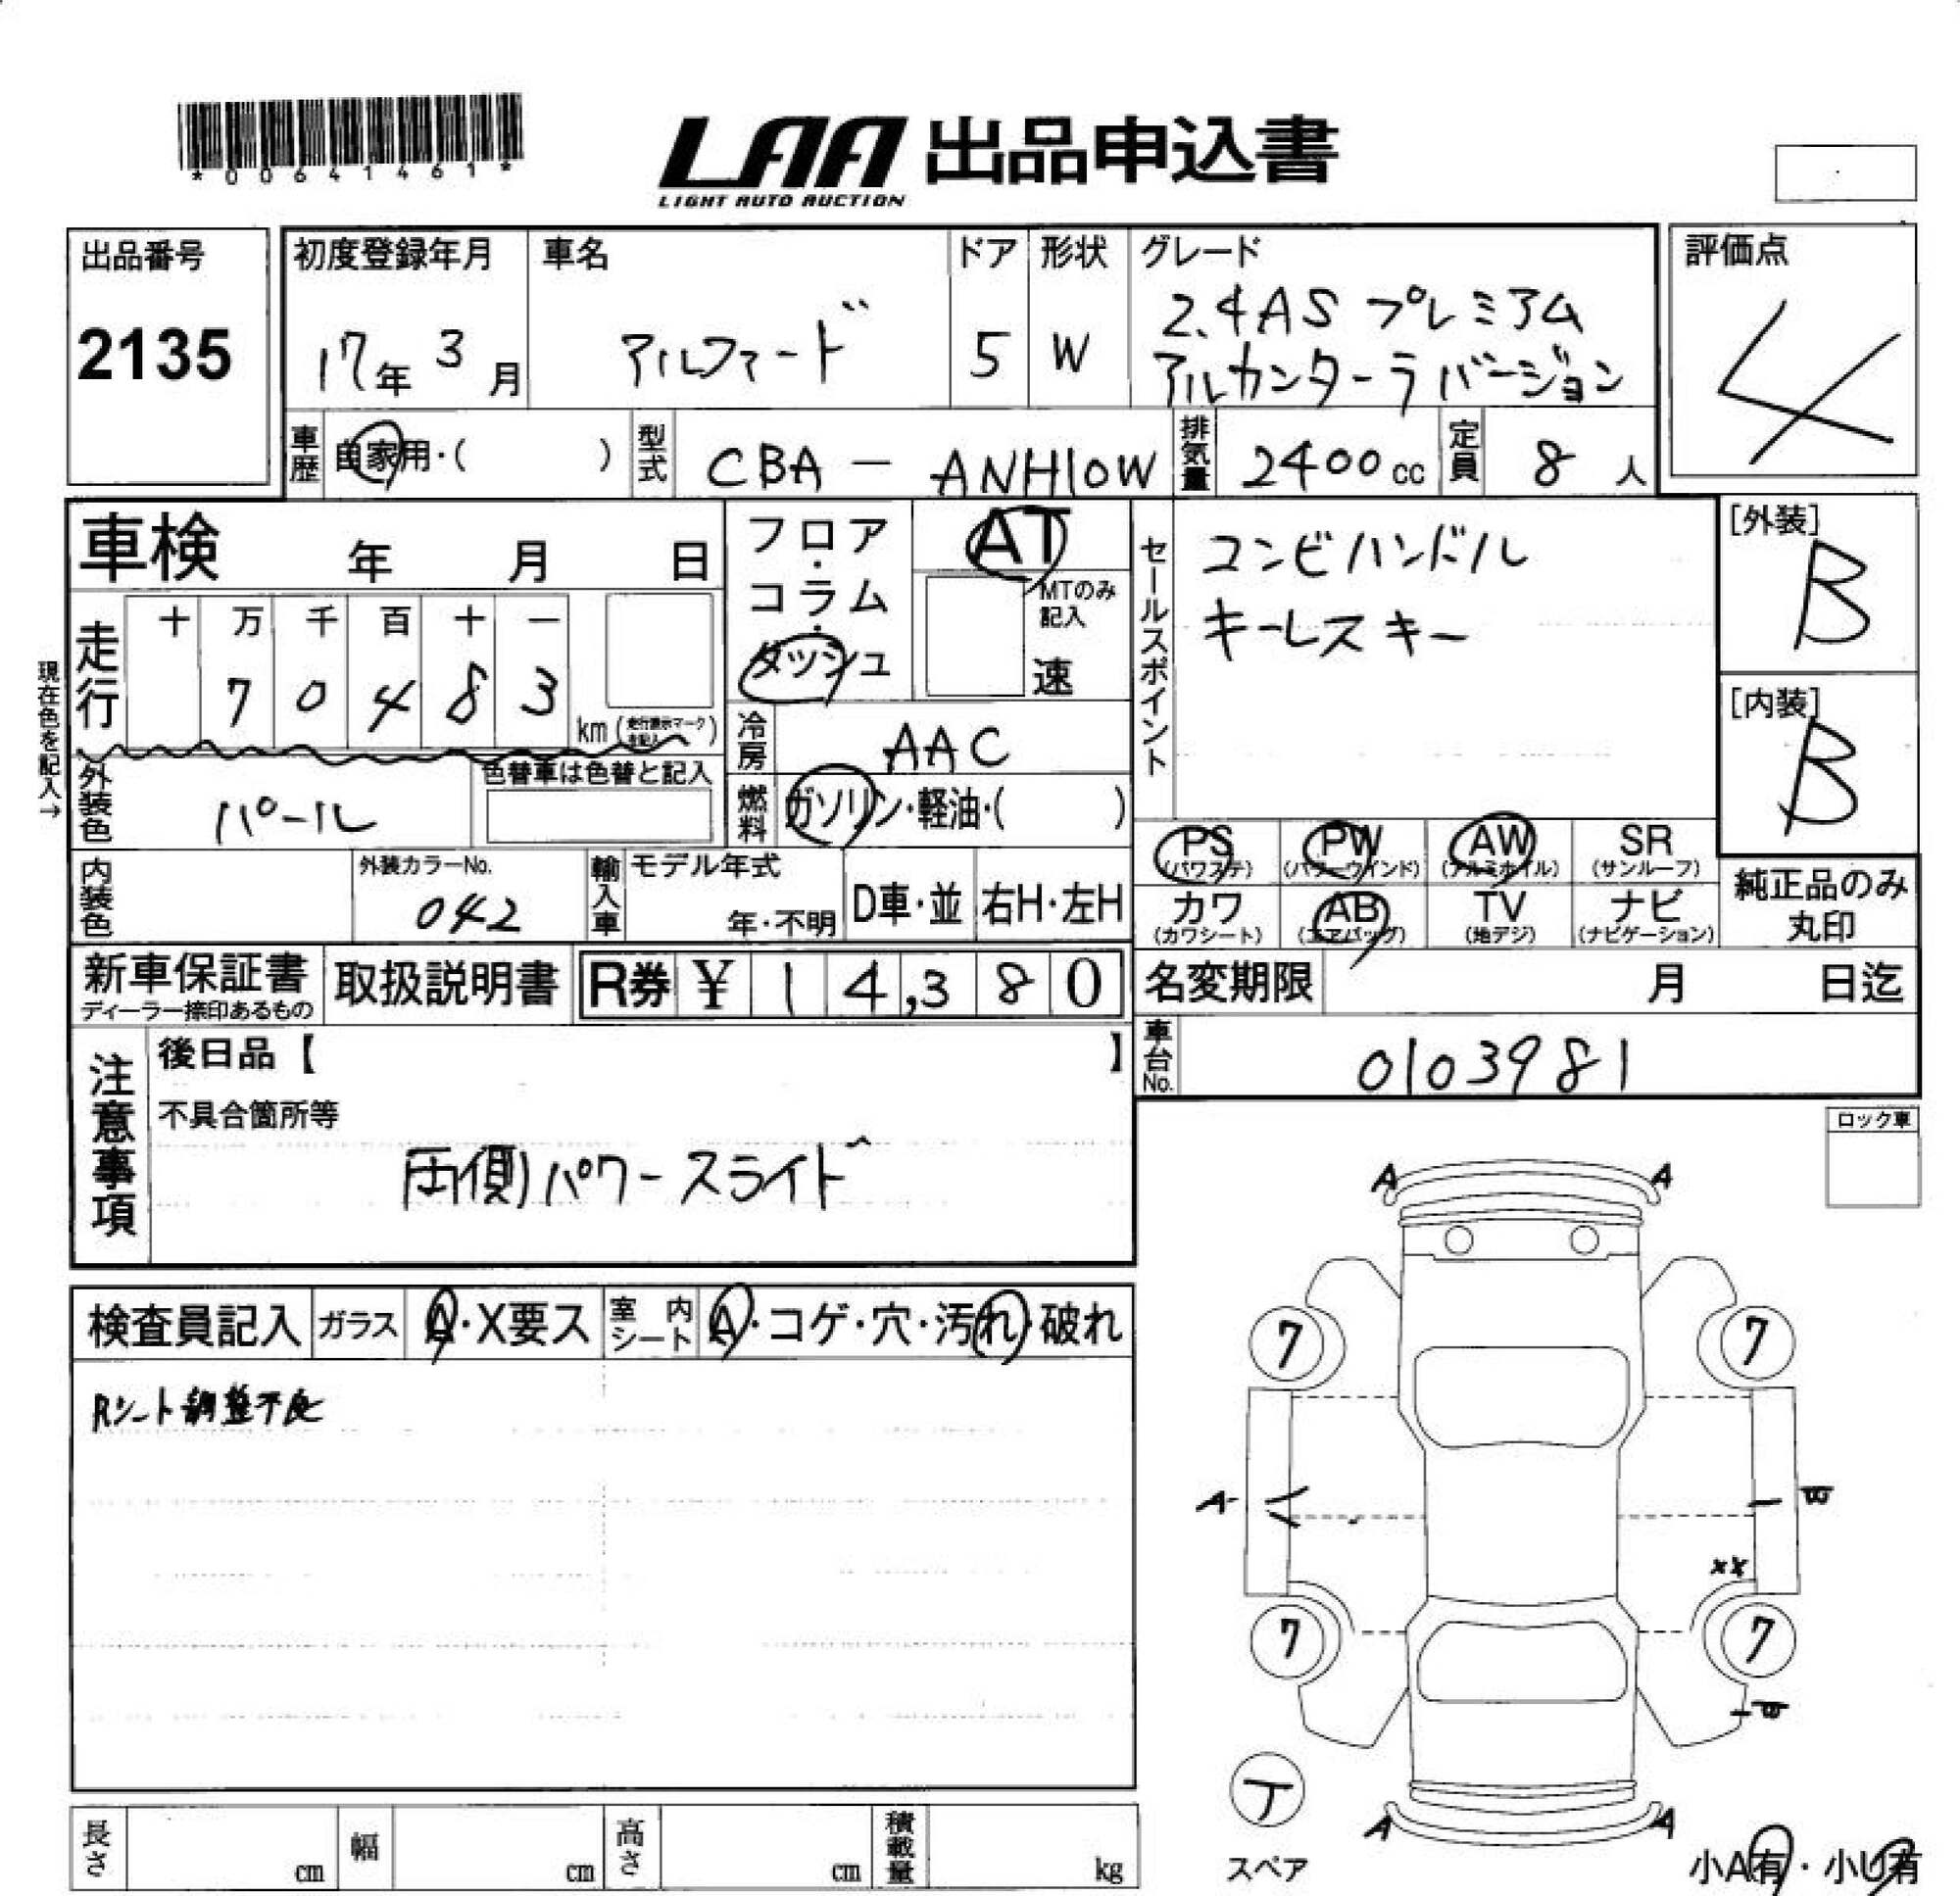 *00641461*
LAA 出品申込書
LIGHT AUTO AUCTION
出品番号
2135
初度登録年月
17年 3月
車名
アルファード
ドア
5
形状
W
グレード
2.4AS プレミアム
アルカンターラバージョン
評価点
4
車歴
自家用・( )
型式
CBA - ANH10W
排気量
2400cc
定員
8人
車検 年 月 日
フロア・コラム・ダッシュ
AT
MTのみ記入
速
セールスポイント
コンビハンドル
キーレスキー
[外装]
B
[内装]
B
現在色を記入→
走行
十 万 千 百 十 一
7 0 4 8 3
km
冷房
AAC
外装色
パール
色替車は色替と記入
燃料
ガソリン・軽油・( )
PS (パワステ)
PW (パワーウインド)
AW (アルミホイル)
SR (サンルーフ)
カワ (カワシート)
AB (エアバッグ)
TV (地デジ)
ナビ (ナビゲーション)
純正品のみ
丸印
内装色
外装カラーNo.
042
輸入車
モデル年式
年・不明
D車・並
右H・左H
新車保証書
ディーラー捺印あるもの
取扱説明書
R券 ¥ 14,380
名変期限 月 日迄
車台No.
0103981
注意事項
後日品【 】
不具合箇所等
両側パワースライド
ロック車
検査員記入
ガラス
A・X要ス
室内シート
A・コゲ・穴・汚れ・破れ
Rシート調整不良
A A
7 7
A B
XX
7 7
B
A A
丁
スペア
小A有・小U有
長さ cm
幅 cm
高さ cm
積載量 kg